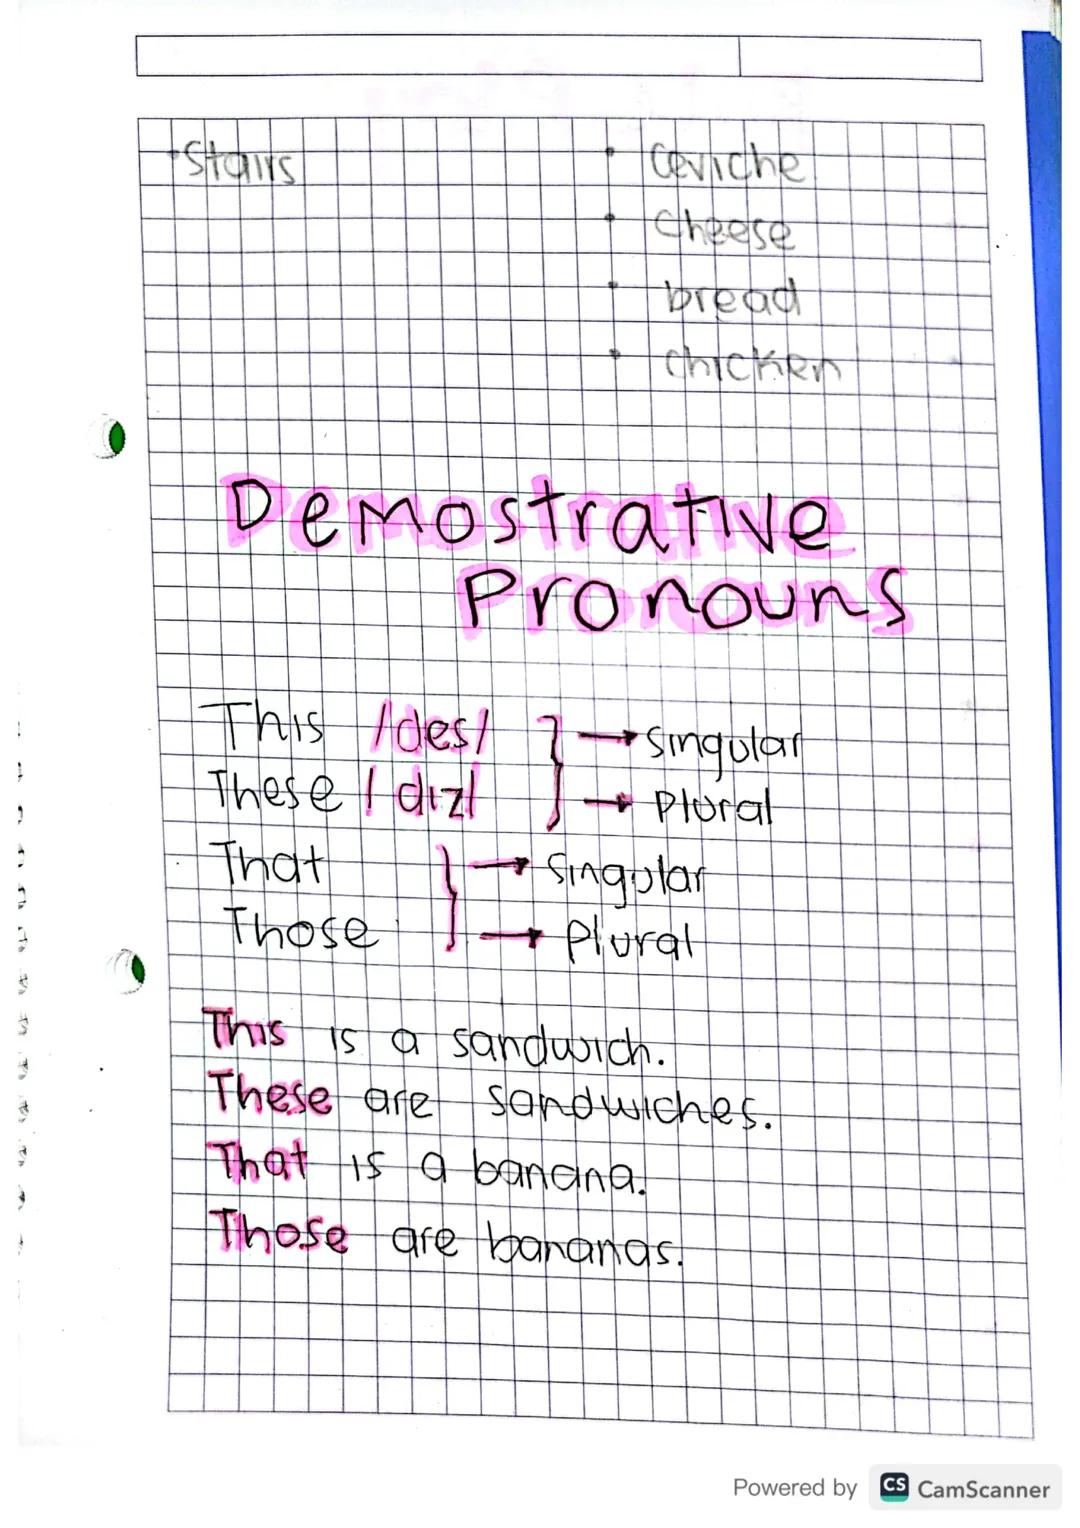 • Stairs
• Ceviche
• Cheese
• bread
• chicken
Demostrative
Pronouns
This /des/ } → Singular
These / diz/ → Plural
That } → Singular
Those → Plural
This is a sandwich.
These are sandwiches.
That is a banana.
Those are bananas.
Powered by CS CamScanner